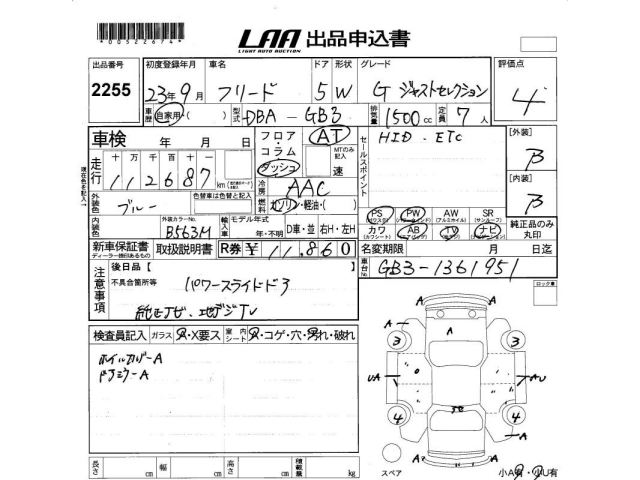 *00522674*
LAA 出品申込書
LIGHT AUTO AUCTION
出品番号 初度登録年月 車名 ドア 形状 グレード 評価点
2255 23年9月 フリード 5 W G ジャストセレクション 4
車歴 自家用・( ) 型式 DBA-GB3 排気量 1500cc 定員 7人
車検 年 月 日 フロア・コラム・ダッシュ AT セールスポイント HID. ETC [外装] B
走行 十 万 千 百 十 一 MTのみ記入 速
112687 km 冷房 AAC [内装] B
外装色 ブルー 色替車は色替と記入 燃料 ガソリン・軽油・( )
外装カラーNo. B563M 輸入車 モデル年式 年・不明 D車・並 右H・左H
PS PW AW SR 純正品のみ丸印
カワ AB TV ナビ
新車保証書 取扱説明書 R券 ¥ 11,860 名変期限 月 日迄
ディーラー捺印あるもの
車台No. GB3-1361951
注意事項 後日品【 】
不具合箇所等 パワースライドドア
純正ナビ.地デジTV
ロック車
検査員記入 ガラス A・X要ス 室内シート A・コゲ・穴・汚れ・破れ
ホイルカバーA
ドアミラーA
A
A A
3 3
UA AU
4 4
A
A A
長さ cm 幅 cm 高さ cm 積載量 kg
スペア 小A有・小U有